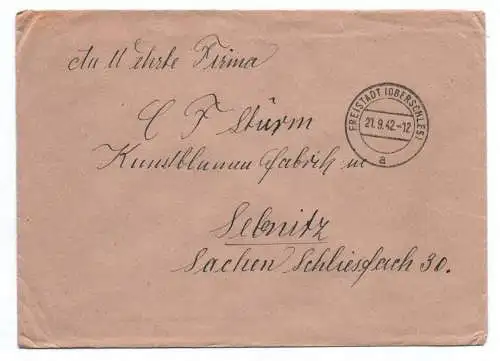 An Wehrte Firma
C F Stürm
Kunstblumen Fabrik in
Sebnitz
Sachen Schliesfach 30.
FREISTADT (OBERSCHLES)
21.9.42-12
a